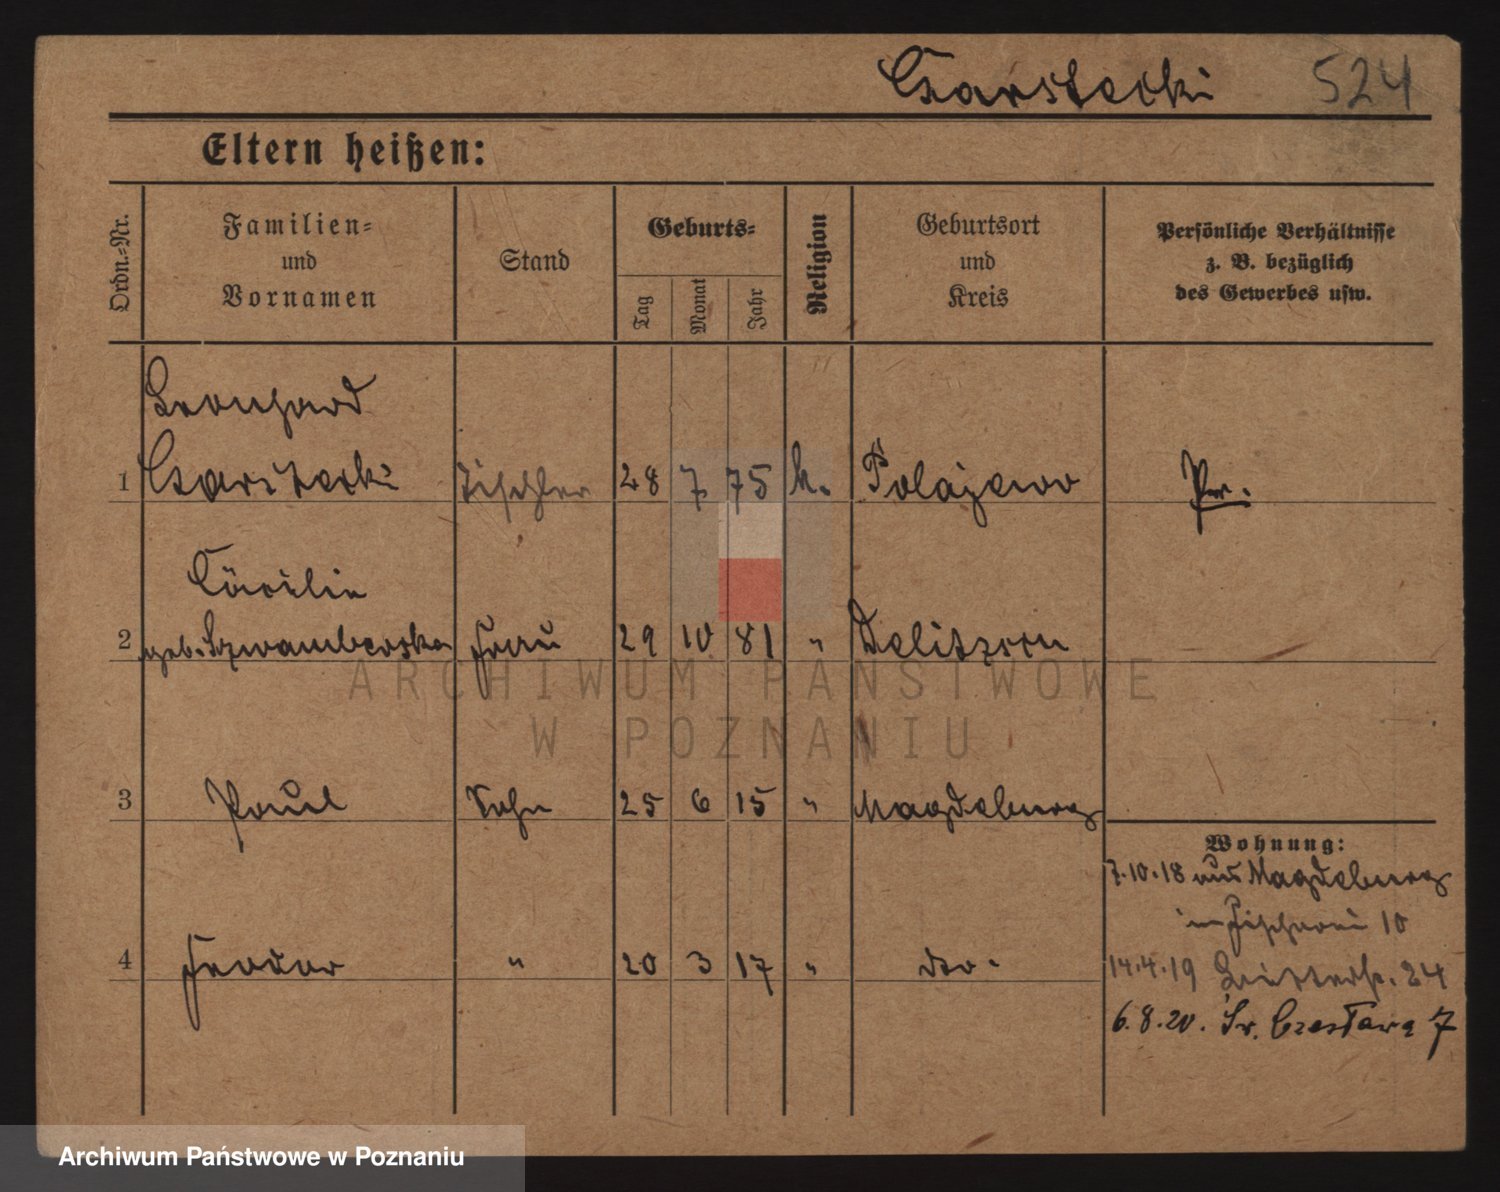 Czarstecki 524
Eltern heißen:
Ordn.-Nr.
Familien-
und
Vornamen
Stand
Geburts-
Tag
Monat
Jahr
Religion
Geburtsort
und
Kreis
Persönliche Verhältnisse
z. B. bezüglich
des Gewerbes usw.
Leonhard
1 Czarstecki Tischler 28 7 75 k. Polajewo Pr.
Cäcilie
2 geb. Szwamberska Frau 29 10 81 "
3 Paul Sohn 25 6 15 " Magdeburg
Wohnung:
7.10.18 aus Magdeburg
in Fischerei 10
4 Feodor " 20 3 17 " do.
14.4.19 24
6.8.20. Św. Czesława 7
ARCHIWUM PAŃSTWOWE
W POZNANIU
Archiwum Państwowe w Poznaniu